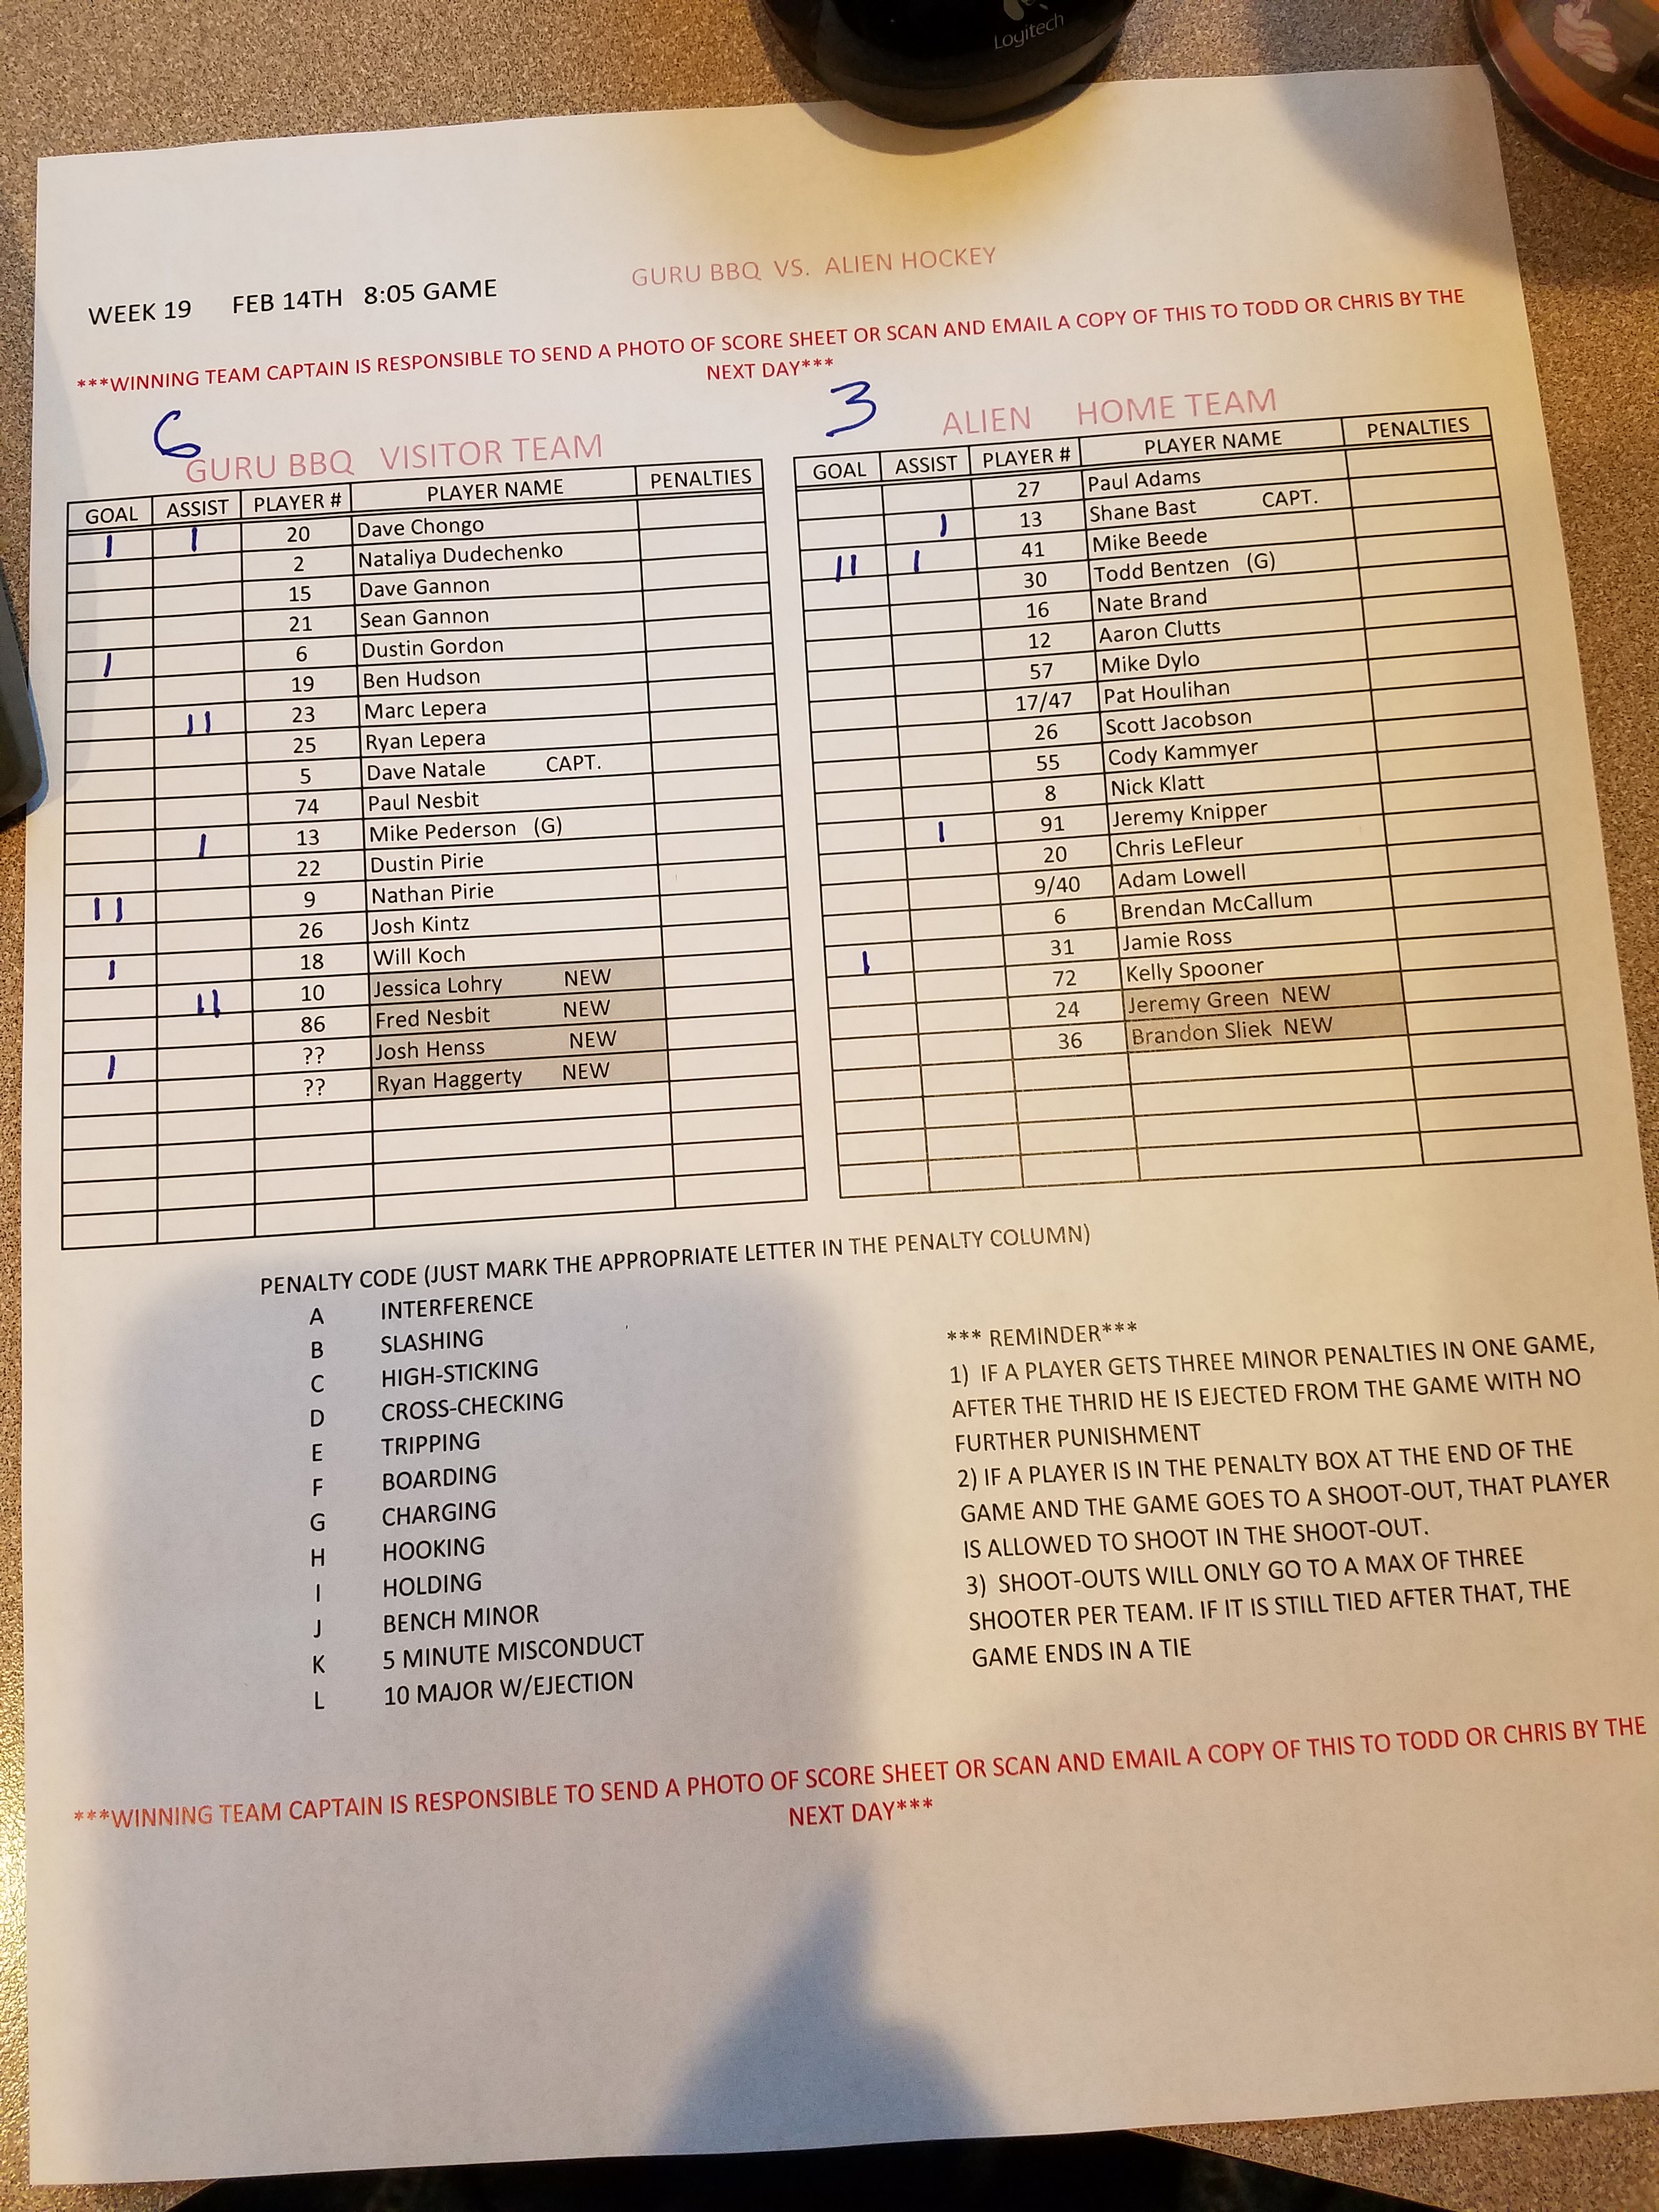 Logitech
WEEK 19 FEB 14TH 8:05 GAME GURU BBQ VS. ALIEN HOCKEY
***WINNING TEAM CAPTAIN IS RESPONSIBLE TO SEND A PHOTO OF SCORE SHEET OR SCAN AND EMAIL A COPY OF THIS TO TODD OR CHRIS BY THE
NEXT DAY***
6
GURU BBQ VISITOR TEAM
GOAL ASSIST PLAYER # PLAYER NAME PENALTIES
| | 20 Dave Chongo
2 Nataliya Dudechenko
15 Dave Gannon
21 Sean Gannon
| 6 Dustin Gordon
19 Ben Hudson
|| 23 Marc Lepera
25 Ryan Lepera
5 Dave Natale CAPT.
74 Paul Nesbit
| 13 Mike Pederson (G)
22 Dustin Pirie
|| 9 Nathan Pirie
26 Josh Kintz
| 18 Will Koch
|| 10 Jessica Lohry NEW
86 Fred Nesbit NEW
| ?? Josh Henss NEW
?? Ryan Haggerty NEW
3
ALIEN HOME TEAM
GOAL ASSIST PLAYER # PLAYER NAME PENALTIES
27 Paul Adams
| 13 Shane Bast CAPT.
|| | 41 Mike Beede
30 Todd Bentzen (G)
16 Nate Brand
12 Aaron Clutts
57 Mike Dylo
17/47 Pat Houlihan
26 Scott Jacobson
55 Cody Kammyer
8 Nick Klatt
| 91 Jeremy Knipper
20 Chris LeFleur
9/40 Adam Lowell
6 Brendan McCallum
| 31 Jamie Ross
72 Kelly Spooner
24 Jeremy Green NEW
36 Brandon Sliek NEW
PENALTY CODE (JUST MARK THE APPROPRIATE LETTER IN THE PENALTY COLUMN)
A INTERFERENCE
B SLASHING
C HIGH-STICKING
D CROSS-CHECKING
E TRIPPING
F BOARDING
G CHARGING
H HOOKING
I HOLDING
J BENCH MINOR
K 5 MINUTE MISCONDUCT
L 10 MAJOR W/EJECTION
*** REMINDER***
1) IF A PLAYER GETS THREE MINOR PENALTIES IN ONE GAME,
AFTER THE THRID HE IS EJECTED FROM THE GAME WITH NO
FURTHER PUNISHMENT
2) IF A PLAYER IS IN THE PENALTY BOX AT THE END OF THE
GAME AND THE GAME GOES TO A SHOOT-OUT, THAT PLAYER
IS ALLOWED TO SHOOT IN THE SHOOT-OUT.
3) SHOOT-OUTS WILL ONLY GO TO A MAX OF THREE
SHOOTER PER TEAM. IF IT IS STILL TIED AFTER THAT, THE
GAME ENDS IN A TIE
***WINNING TEAM CAPTAIN IS RESPONSIBLE TO SEND A PHOTO OF SCORE SHEET OR SCAN AND EMAIL A COPY OF THIS TO TODD OR CHRIS BY THE
NEXT DAY***